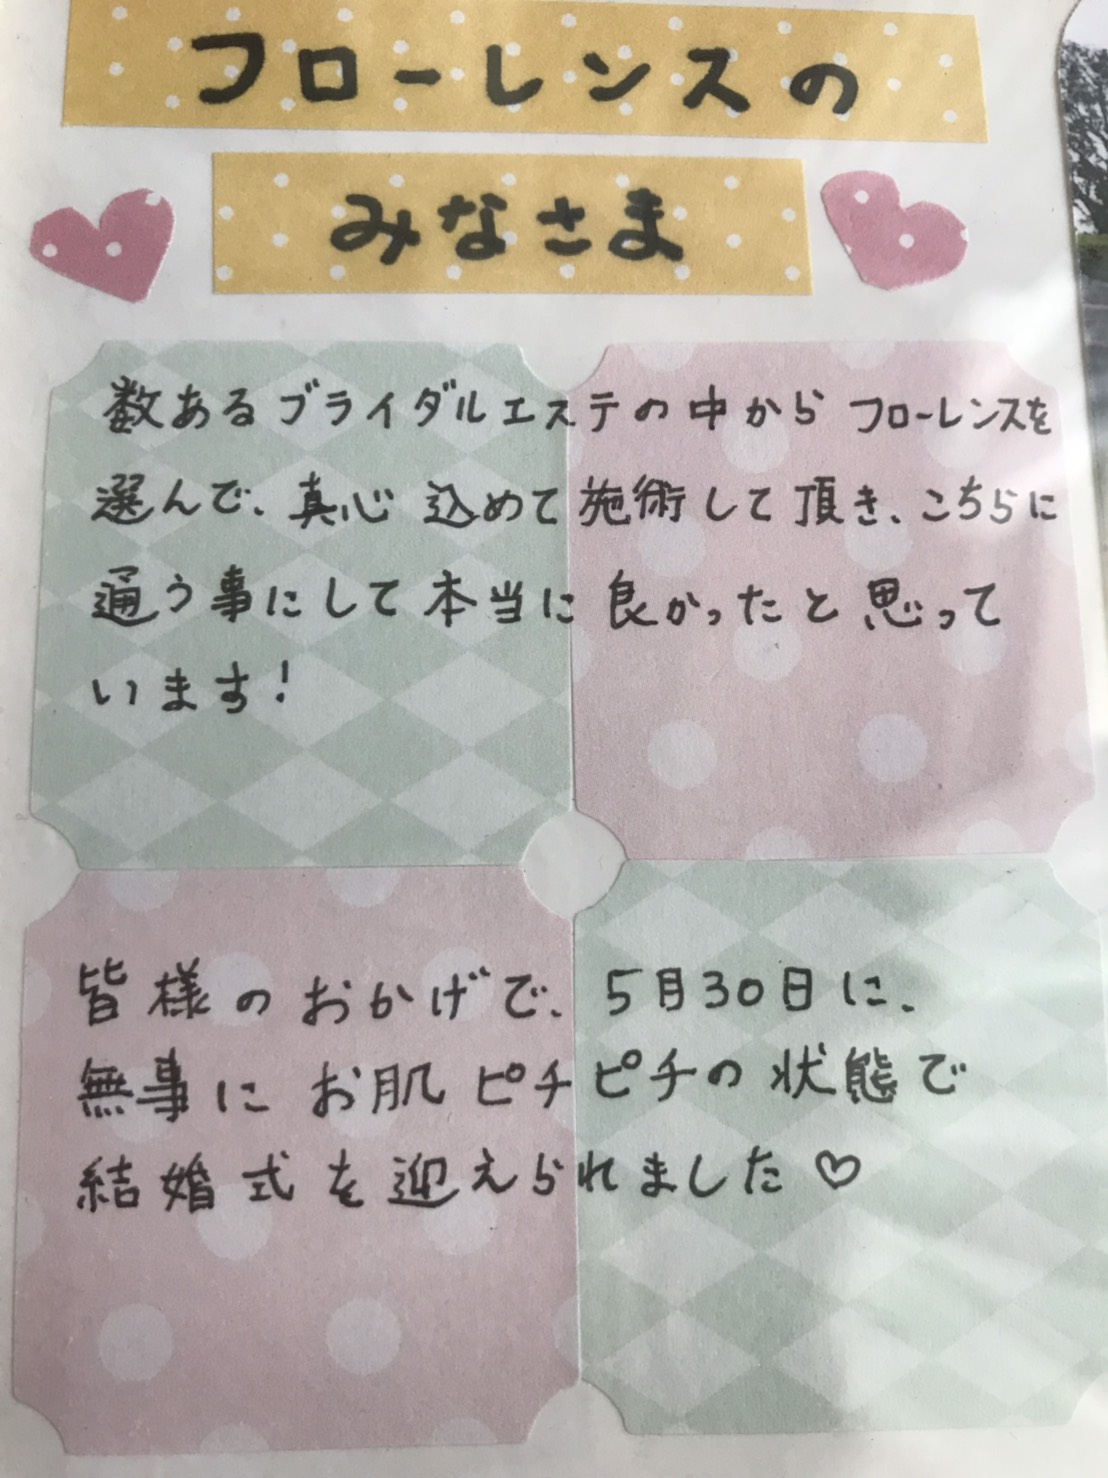 フローレンスの
みなさま
数あるブライダルエステの中からフローレンスを
選んで、真心込めて施術して頂き、こちらに
通う事にして本当に良かったと思って
います!
皆様のおかげで、5月30日に、
無事にお肌ピチピチの状態で
結婚式を迎えられました♡